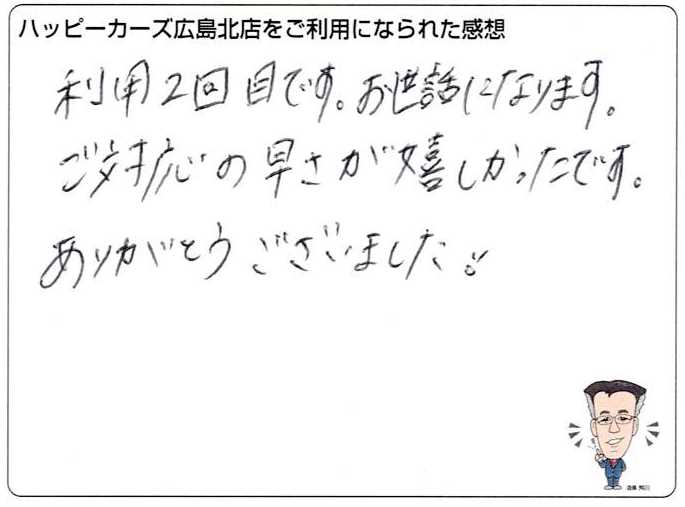 ハッピーカーズ広島北店をご利用になられた感想
利用2回目です。お世話になります。
ご対応の早さが嬉しかったです。
ありがとうございました!